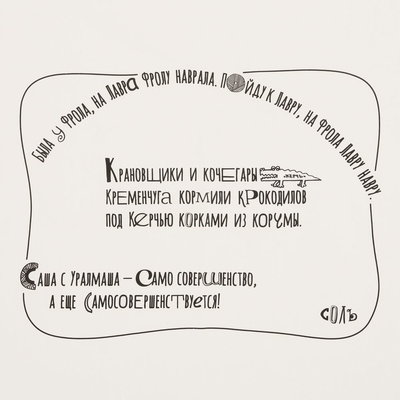 Была у Фрола, на Лавра Фролу наврала. Пойду к Лавру, на Фрола Лавру навру.
Крановщики и кочегары
«Керчь»
Кременчуга кормили крокодилов
под Керчью корками из корчмы.
Саша с Уралмаша – Само совершенство,
а еще Самосовершенствуется!
СОЛЬ